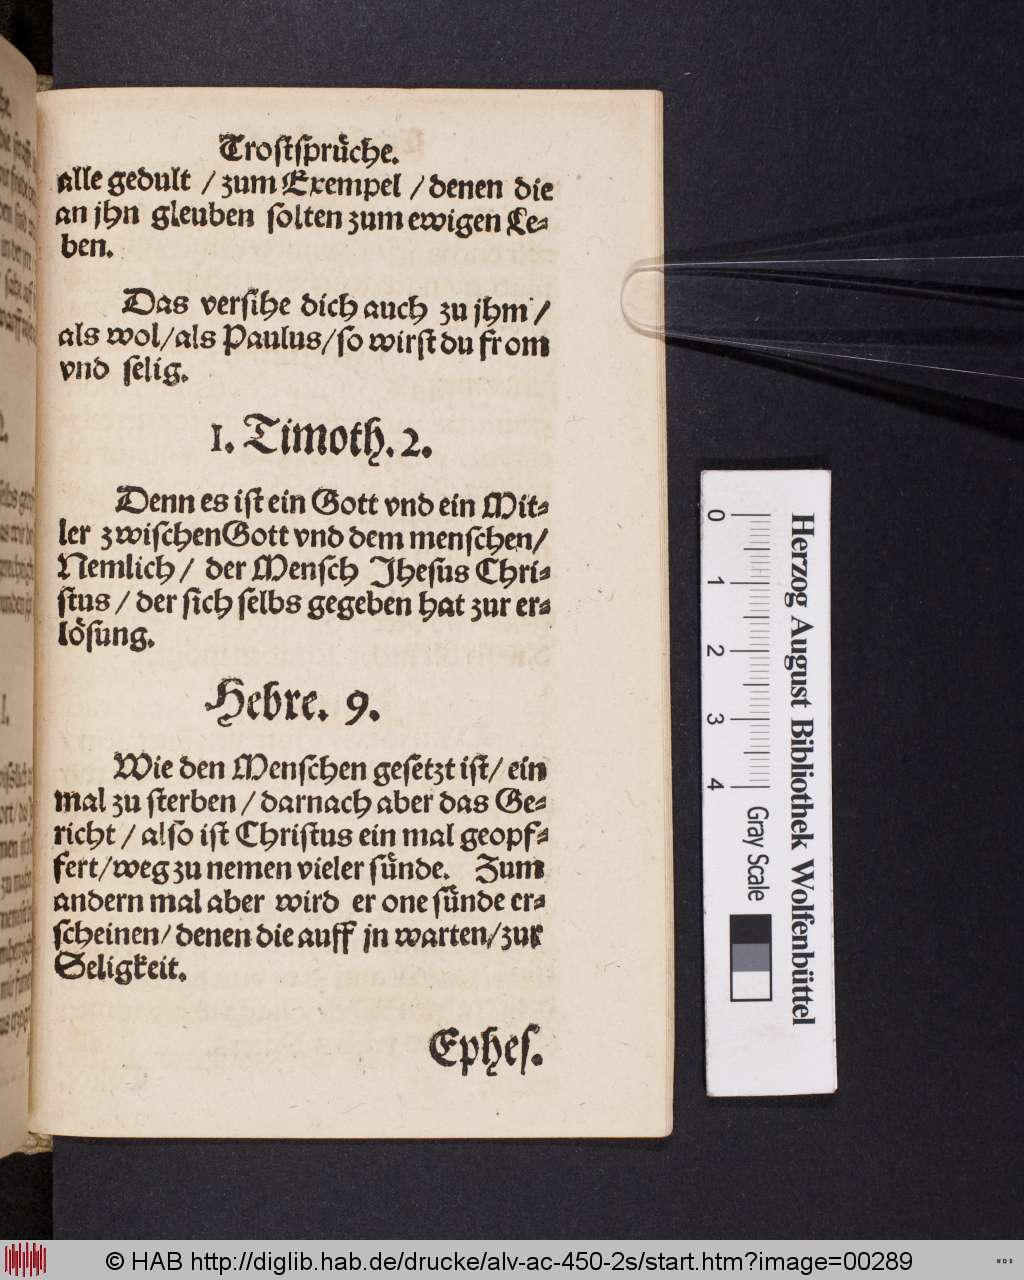 Trostsprüche.
alle gedult / zum Exempel / denen die
an jhn gleuben solten zum ewigen Le-
ben.
Das versihe dich auch zu jhm /
als wol / als Paulus / so wirst du from
vnd selig.
1. Timoth. 2.
Denn es ist ein Gott vnd ein Mit-
ler zwischen Gott vnd dem menschen /
Nemlich / der Mensch Jhesus Chri-
stus / der sich selbs gegeben hat zur er-
lösung.
Hebre. 9.
Wie den Menschen gesetzt ist / ein
mal zu sterben / darnach aber das Ge-
richt / also ist Christus ein mal geopf-
fert / weg zu nemen vieler sünde. Zum
andern mal aber wird er one sünde er-
scheinen / denen die auff jn warten / zur
Seligkeit.
Ephes.
0 1 2 3 4
Gray Scale
Herzog August Bibliothek Wolfenbüttel
© HAB http://diglib.hab.de/drucke/alv-ac-450-2s/start.htm?image=00289